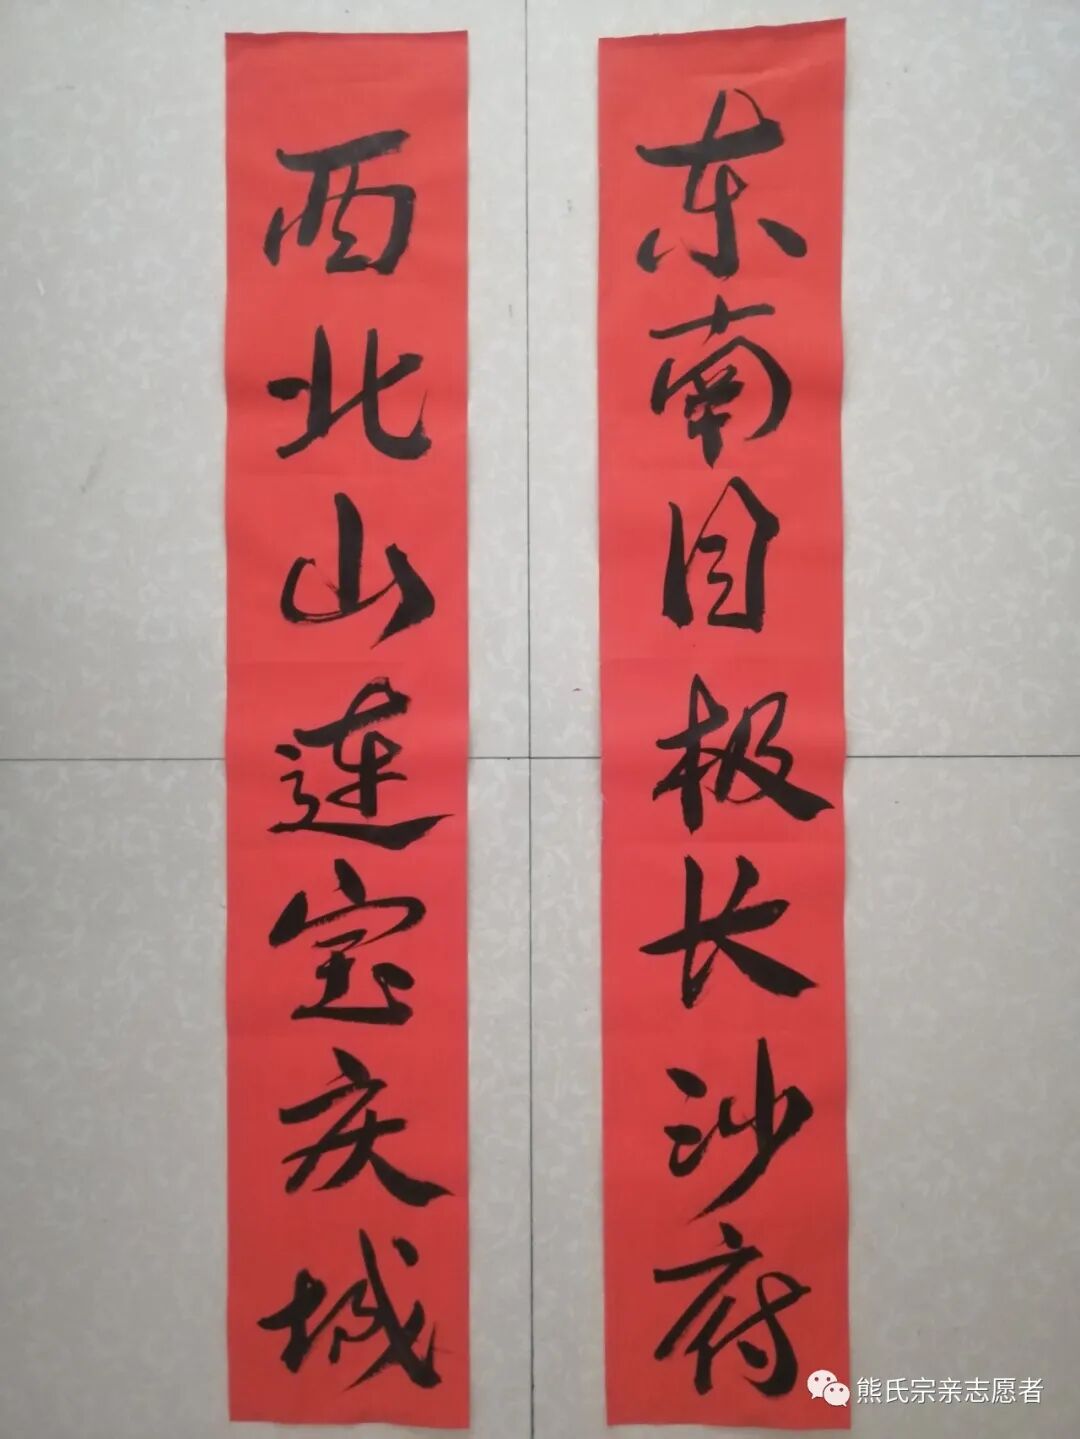 东南目极长沙府
西北山连宝庆城
熊氏宗亲志愿者